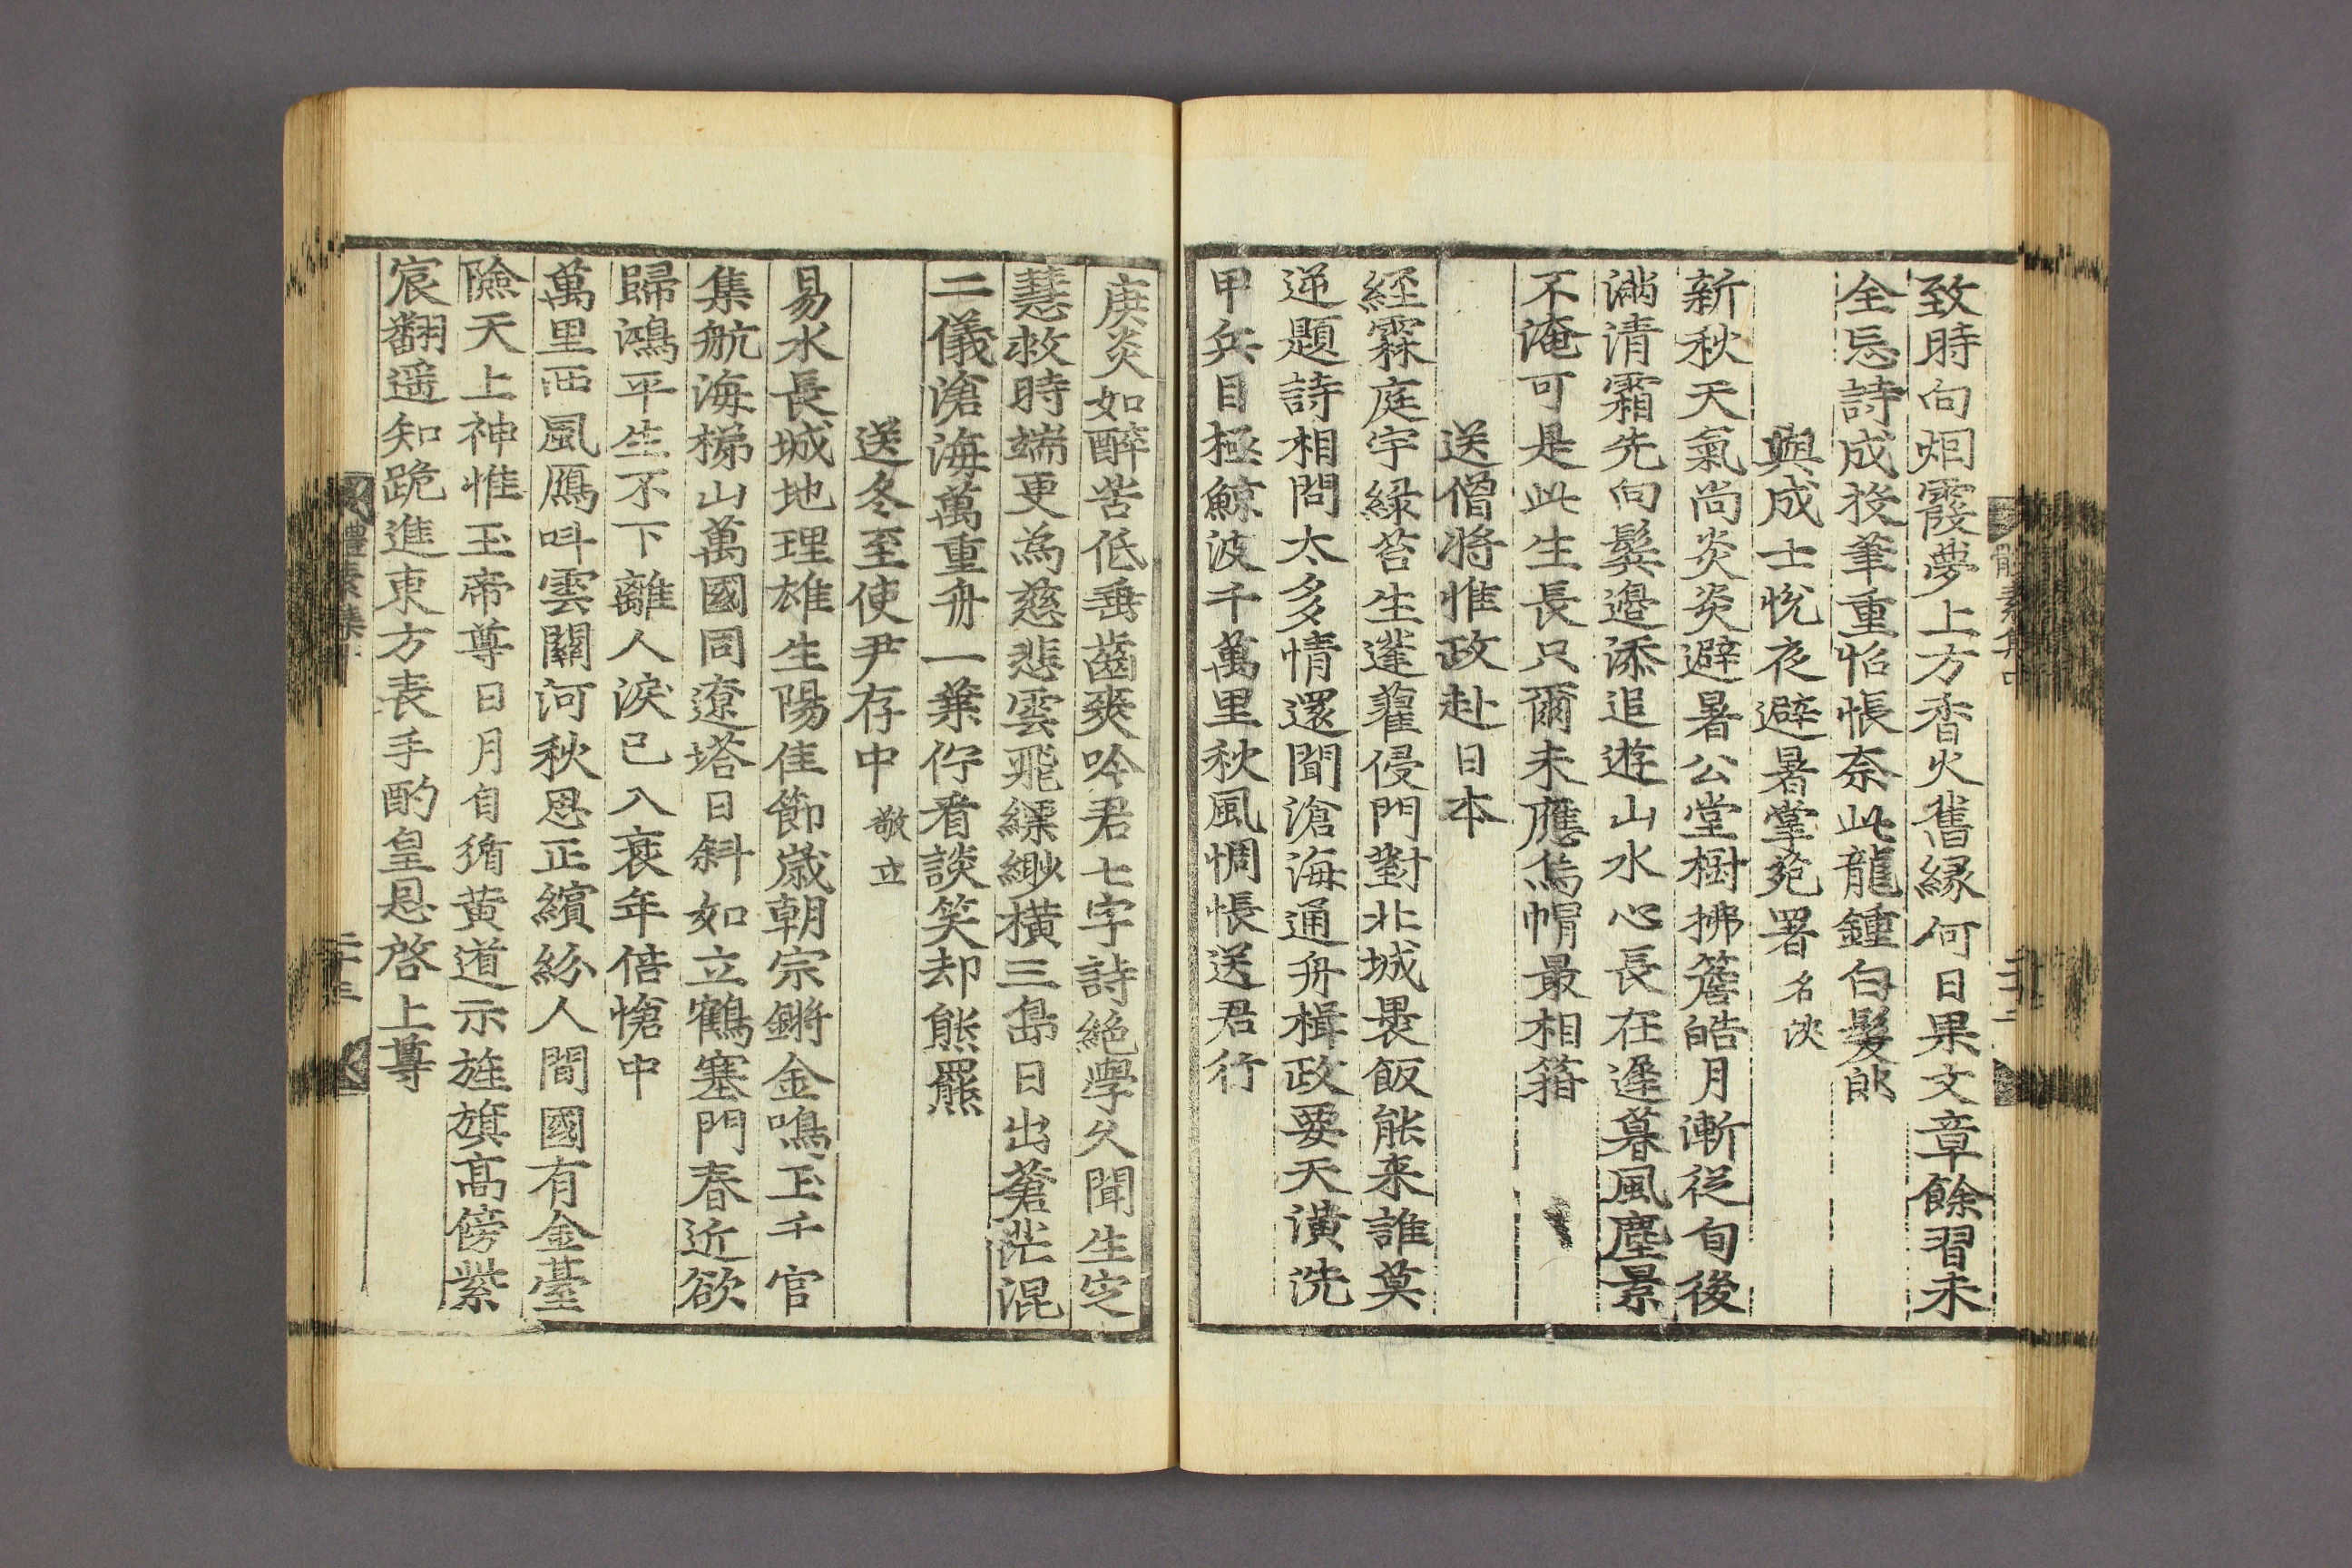 致時向烟霞夢上方香火舊緣何日果文章餘習未
全忘詩成投筆重怊悵奈此龍鍾白髮郎
與成士悅夜避暑掌苑署名浹
新秋天氣尚炎炎避暑公堂樹拂簷皓月漸從旬後
滿清霜先向鬢邊添追遊山水心長在遲暮風塵景
不淹可是此生長只爾未應烏帽最相箝
送僧將惟政赴日本
經霖庭宇綠苔生蓬藋侵門對北城晨飯能来誰莫
逆題詩相問太多情還聞滄海通舟楫政要天潢洗
甲兵目極鯨波千萬里秋風惆悵送君行
庚炎如醉苦低垂齒爽吟君七字詩絶學久聞生定
慧救時端更為慈悲雲飛縹緲橫三島日出蒼茫混
二儀滄海萬重舟一葉佇看談笑却熊羆
送冬至使尹存中敬立
易水長城地理雄生陽佳節歲朝宗鏘金鳴玉千官
集航海梯山萬國同遼塔日斜如立鶴塞門春近欲
歸鴻平生不下離人淚已入衰年倍愴中
萬里西風鴈叫雲關河秋思正繽紛人間國有金臺
險天上神惟玉帝尊日月自循黄道示旌旗高傍紫
宸翻遥知跪進東方表手酌皇恩啓上尊
體素集中
二十二
體素集中
二十三